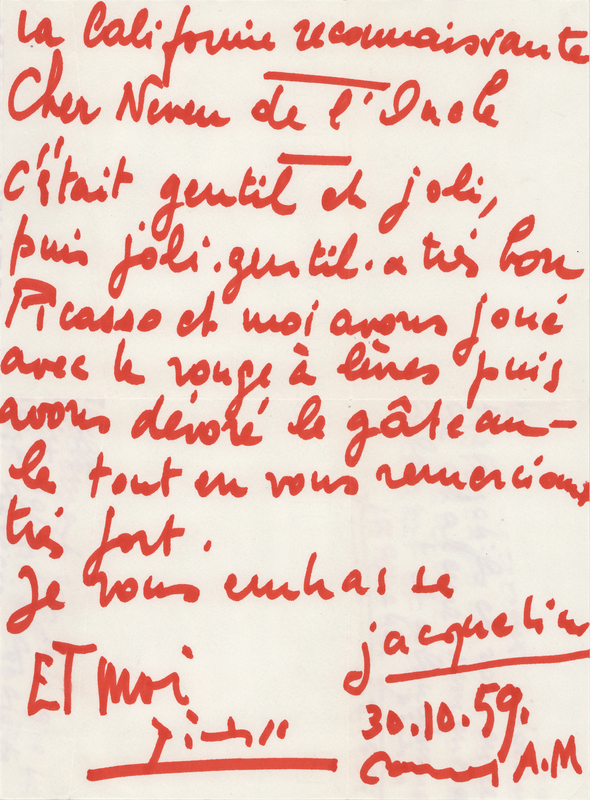 La Californie reconnaissante
Cher Neveu de l'Oncle
c'était gentil et joli,
puis joli.gentil.a très bon
Picasso et moi avons joué
avec le rouge à lèvres puis
avons dévoré le gâteau—
le tout en vous remerciant
très fort.
Je vous embrasse
jacqueline
ET moi
30.10.59.
Picasso
Cannes A.M